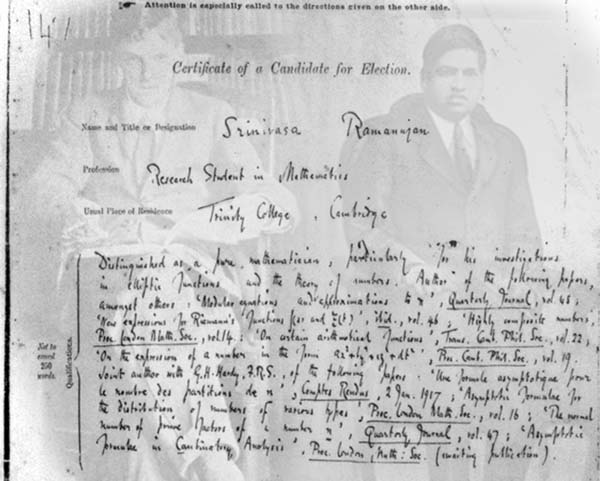 ☛ Attention is especially called to the directions given on the other side.
141
Certificate of a Candidate for Election.
Name and Title or Designation Srinivasa Ramanujan
Profession Research Student in Mathematics
Usual Place of Residence Trinity College, Cambridge
Not to exceed 250 words.
Qualifications.
Distinguished as a pure mathematician, particularly for his investigations
in elliptic functions and the theory of numbers. Author of the following papers,
amongst others: 'Modular equations and approximations to π', Quarterly Journal, vol. 45;
'New expressions for Riemann's functions ξ(s) and Ξ(t)', ibid., vol. 46; 'Highly composite numbers',
Proc. London Math. Soc., vol. 14. 'On certain arithmetical functions', Trans. Camb. Phil. Soc., vol. 22;
'On the expression of a number in the form ax²+by²+cz²+dt²', Proc. Camb. Phil. Soc., vol. 19.
Joint author with G.H. Hardy, F.R.S., of the following papers: 'Une formule asymptotique pour
le nombre des partitions de n', Comptes Rendus, 2 Jan. 1917; 'Asymptotic Formulae for
the distribution of numbers of various types', Proc. London Math. Soc., vol. 16; 'The normal
number of prime factors of a number n', Quarterly Journal, vol. 47; 'Asymptotic
formulae in Combinatory Analysis', Proc. London Math: Soc. (awaiting publication).